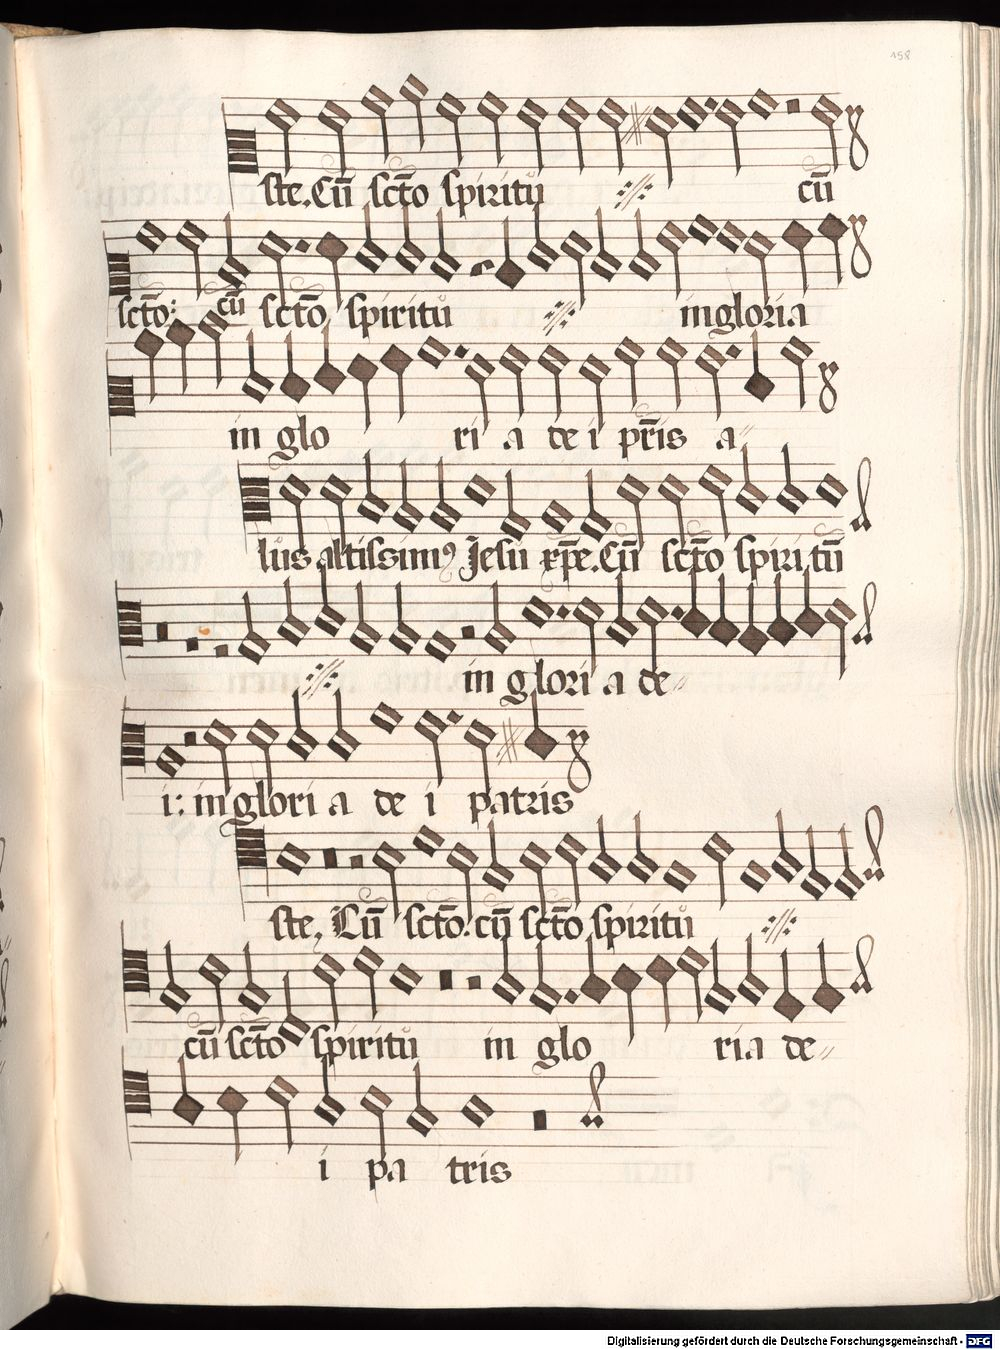 158
ste. Cū sctō spiritu cū
sctō: cū sctō spiritu in gloria
in glo ri a de i pr̄is a
lius altissimꝰ Jesu xp̄e. Cū sctō spiritu
in glori a de
i: in glori a de i patris
ste. Cū sctō. cū sctō spiritu
cū sctō spiritu in glo ria de
i pa tris
Digitalisierung gefördert durch die Deutsche Forschungsgemeinschaft - DFG